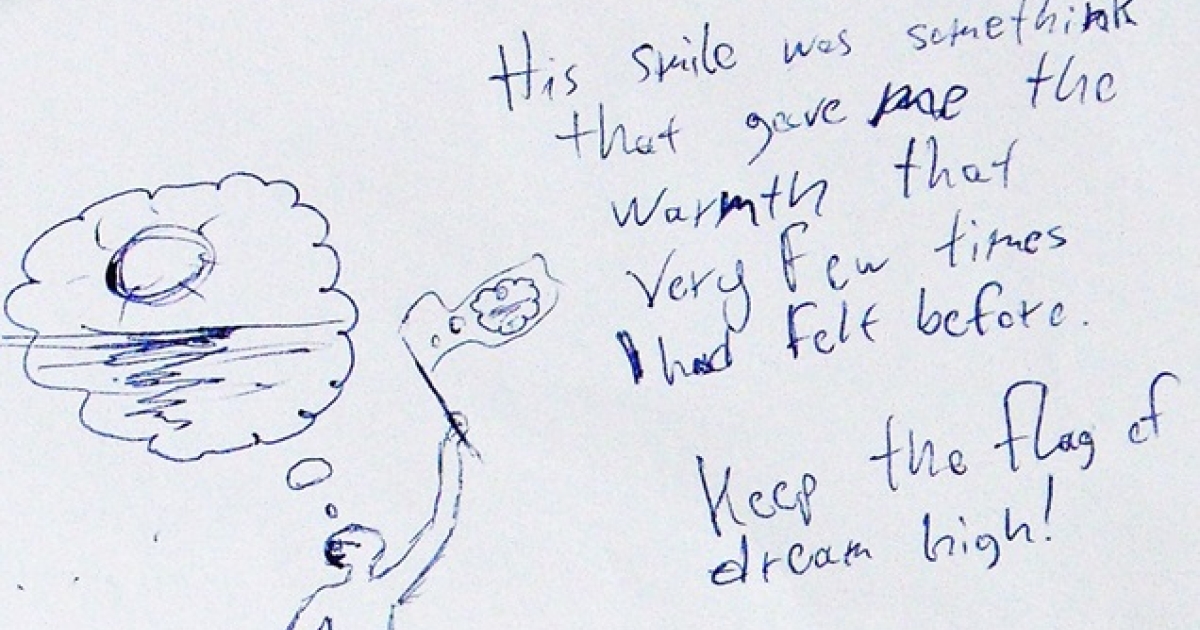 His smile was somethink
that gave me the
warmth that
very few times
I had felt before.
Keep the flag of
dream high!